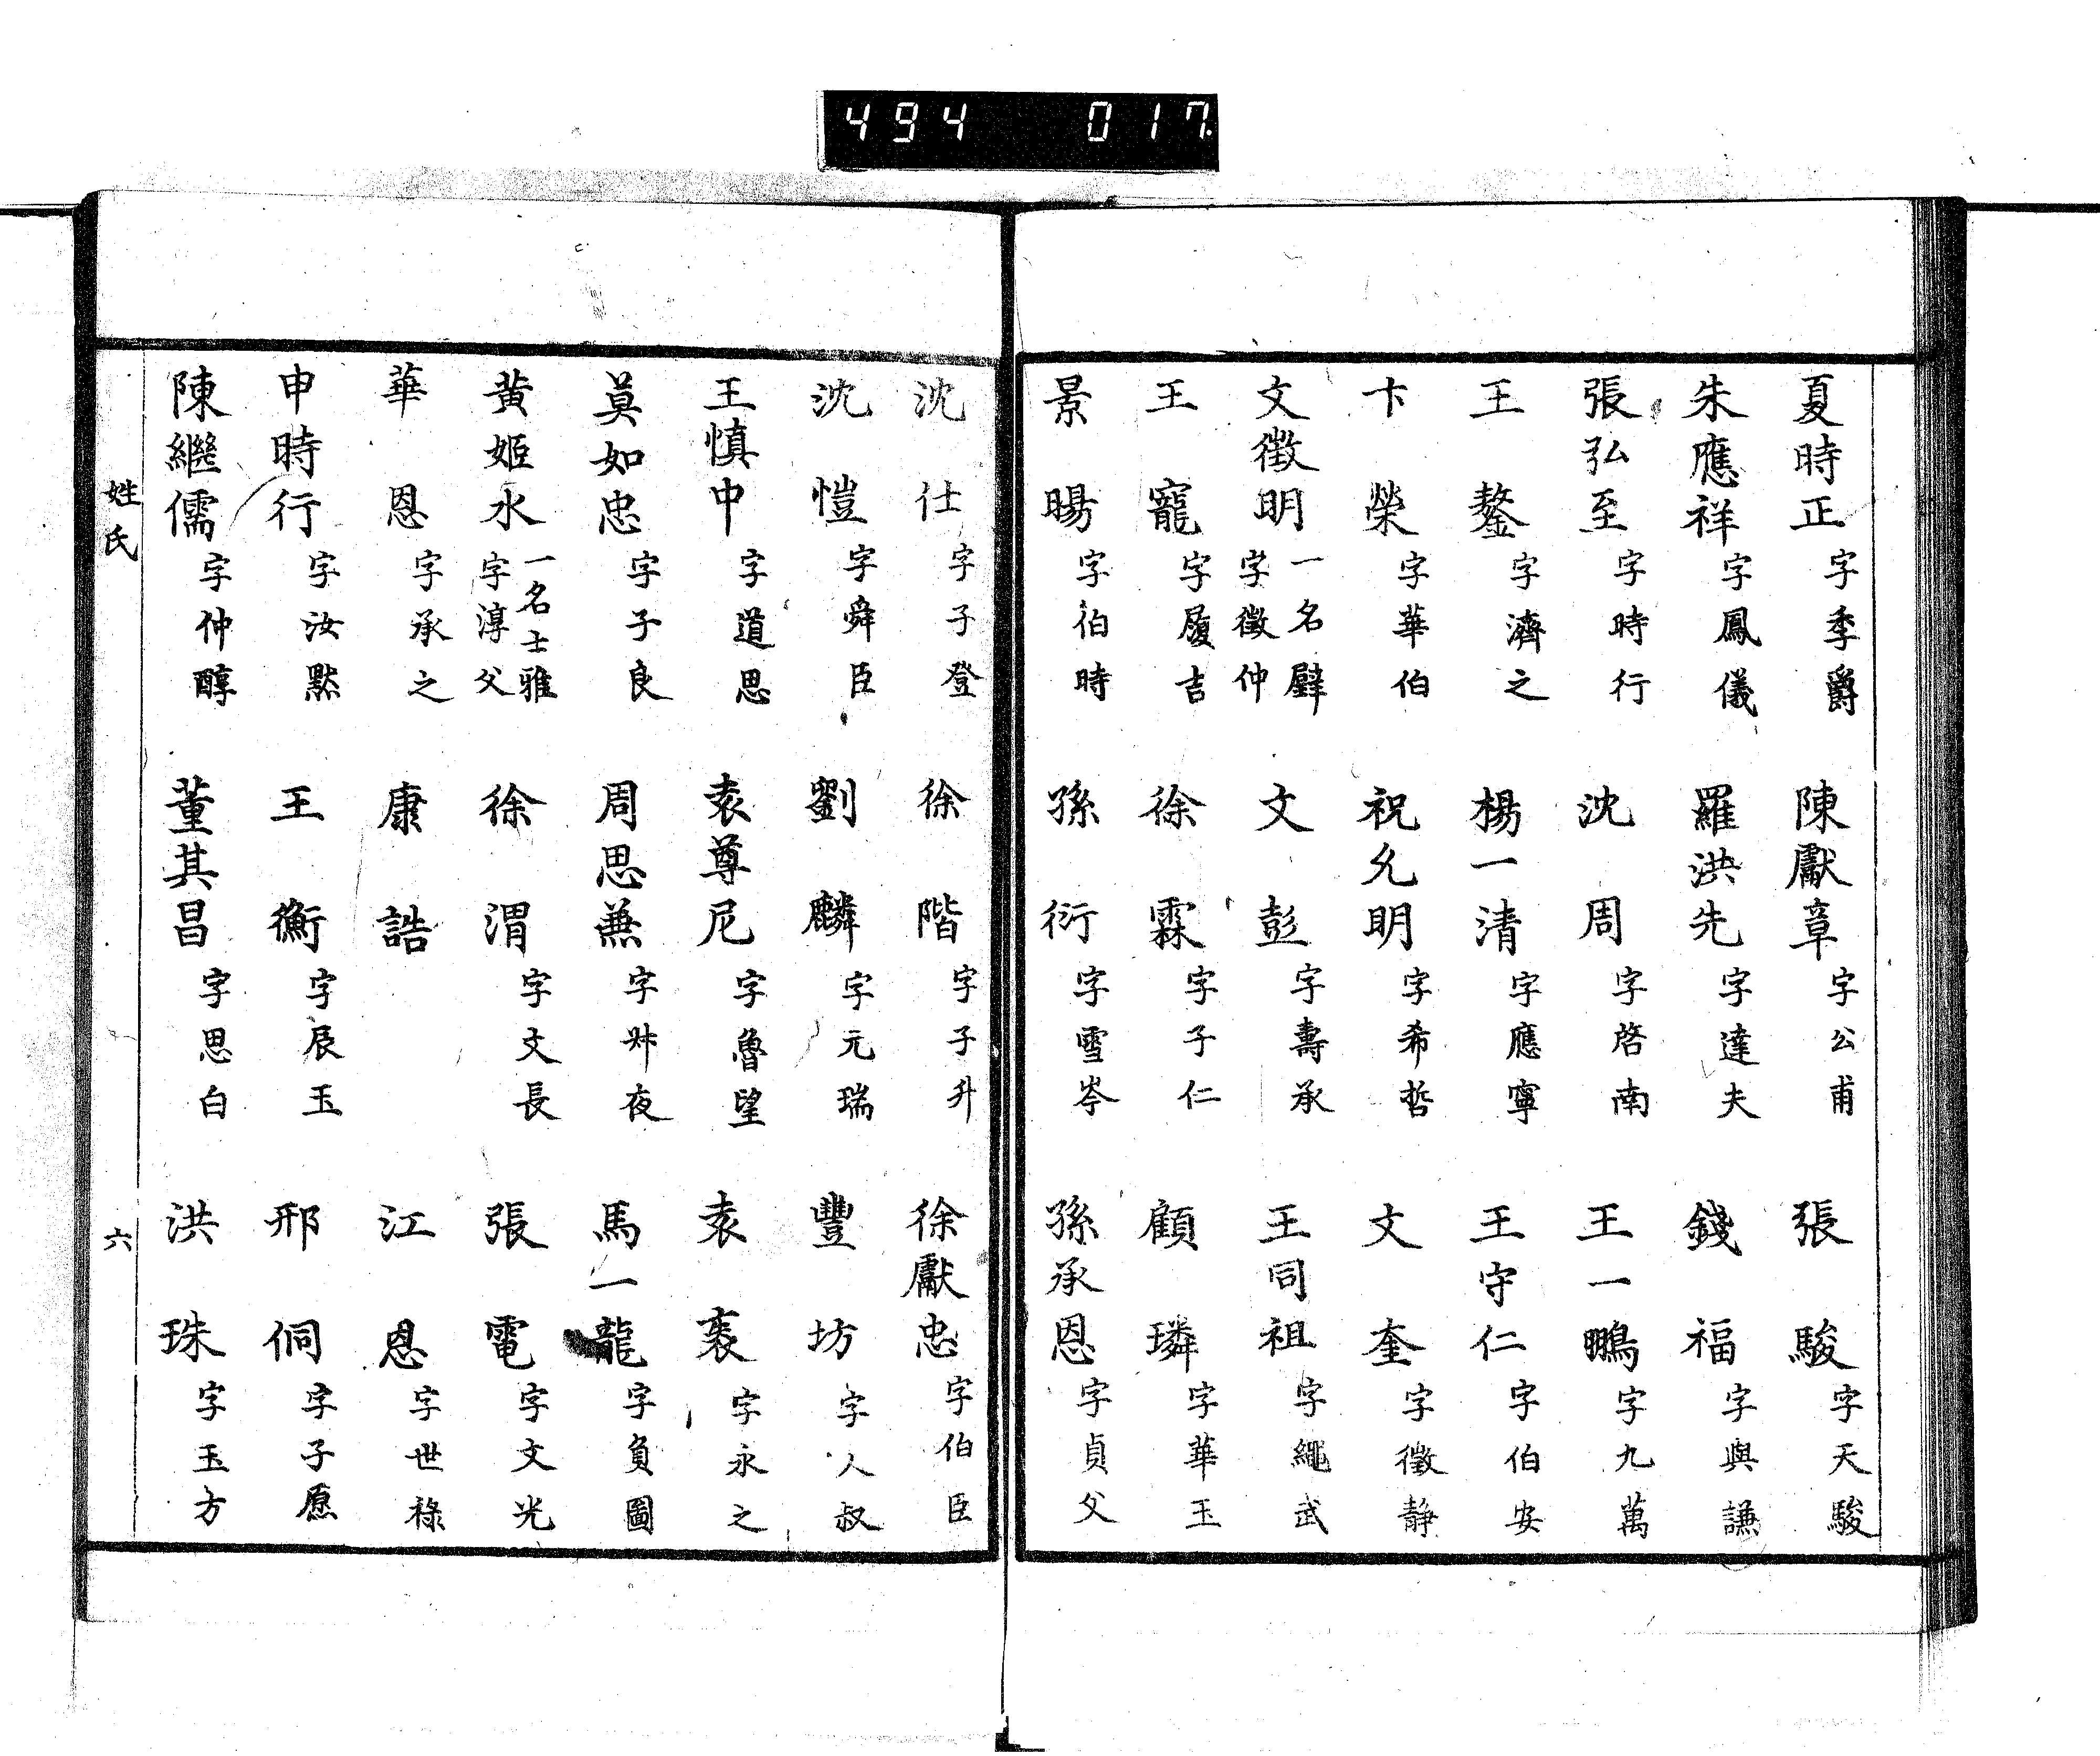 494 017
夏時正 字季爵 陳獻章 字公甫 張駿 字天駿
朱應祥 字鳳儀 羅洪先 字達夫 錢福 字與謙
張弘至 字時行 沈周 字啓南 王一鵬 字九萬
王鏊 字濟之 楊一清 字應寧 王守仁 字伯安
卞榮 字華伯 祝允明 字希哲 文奎 字徵静
文徵明 一名壁 字徵仲 文彭 字壽承 王同祖 字繩武
王寵 字履吉 徐霖 字子仁 顧璘 字華玉
景暘 字伯時 孫衍 字雪岑 孫承恩 字貞父
沈仕 字子登 徐階 字子升 徐獻忠 字伯臣
沈愷 字舜臣 劉麟 字元瑞 豐坊 字人叔
王慎中 字道思 袁尊尼 字魯望 袁褧 字永之
莫如忠 字子良 周思兼 字叔夜 馬一龍 字負圖
黄姬水 一名士雅 字淳父 徐渭 字文長 張電 字文光
華恩 字承之 康誥 江恩 字世祿
申時行 字汝默 王衡 字辰玉 邢侗 字子愿
陳繼儒 字仲醇 董其昌 字思白 洪珠 字玉方
姓氏 六